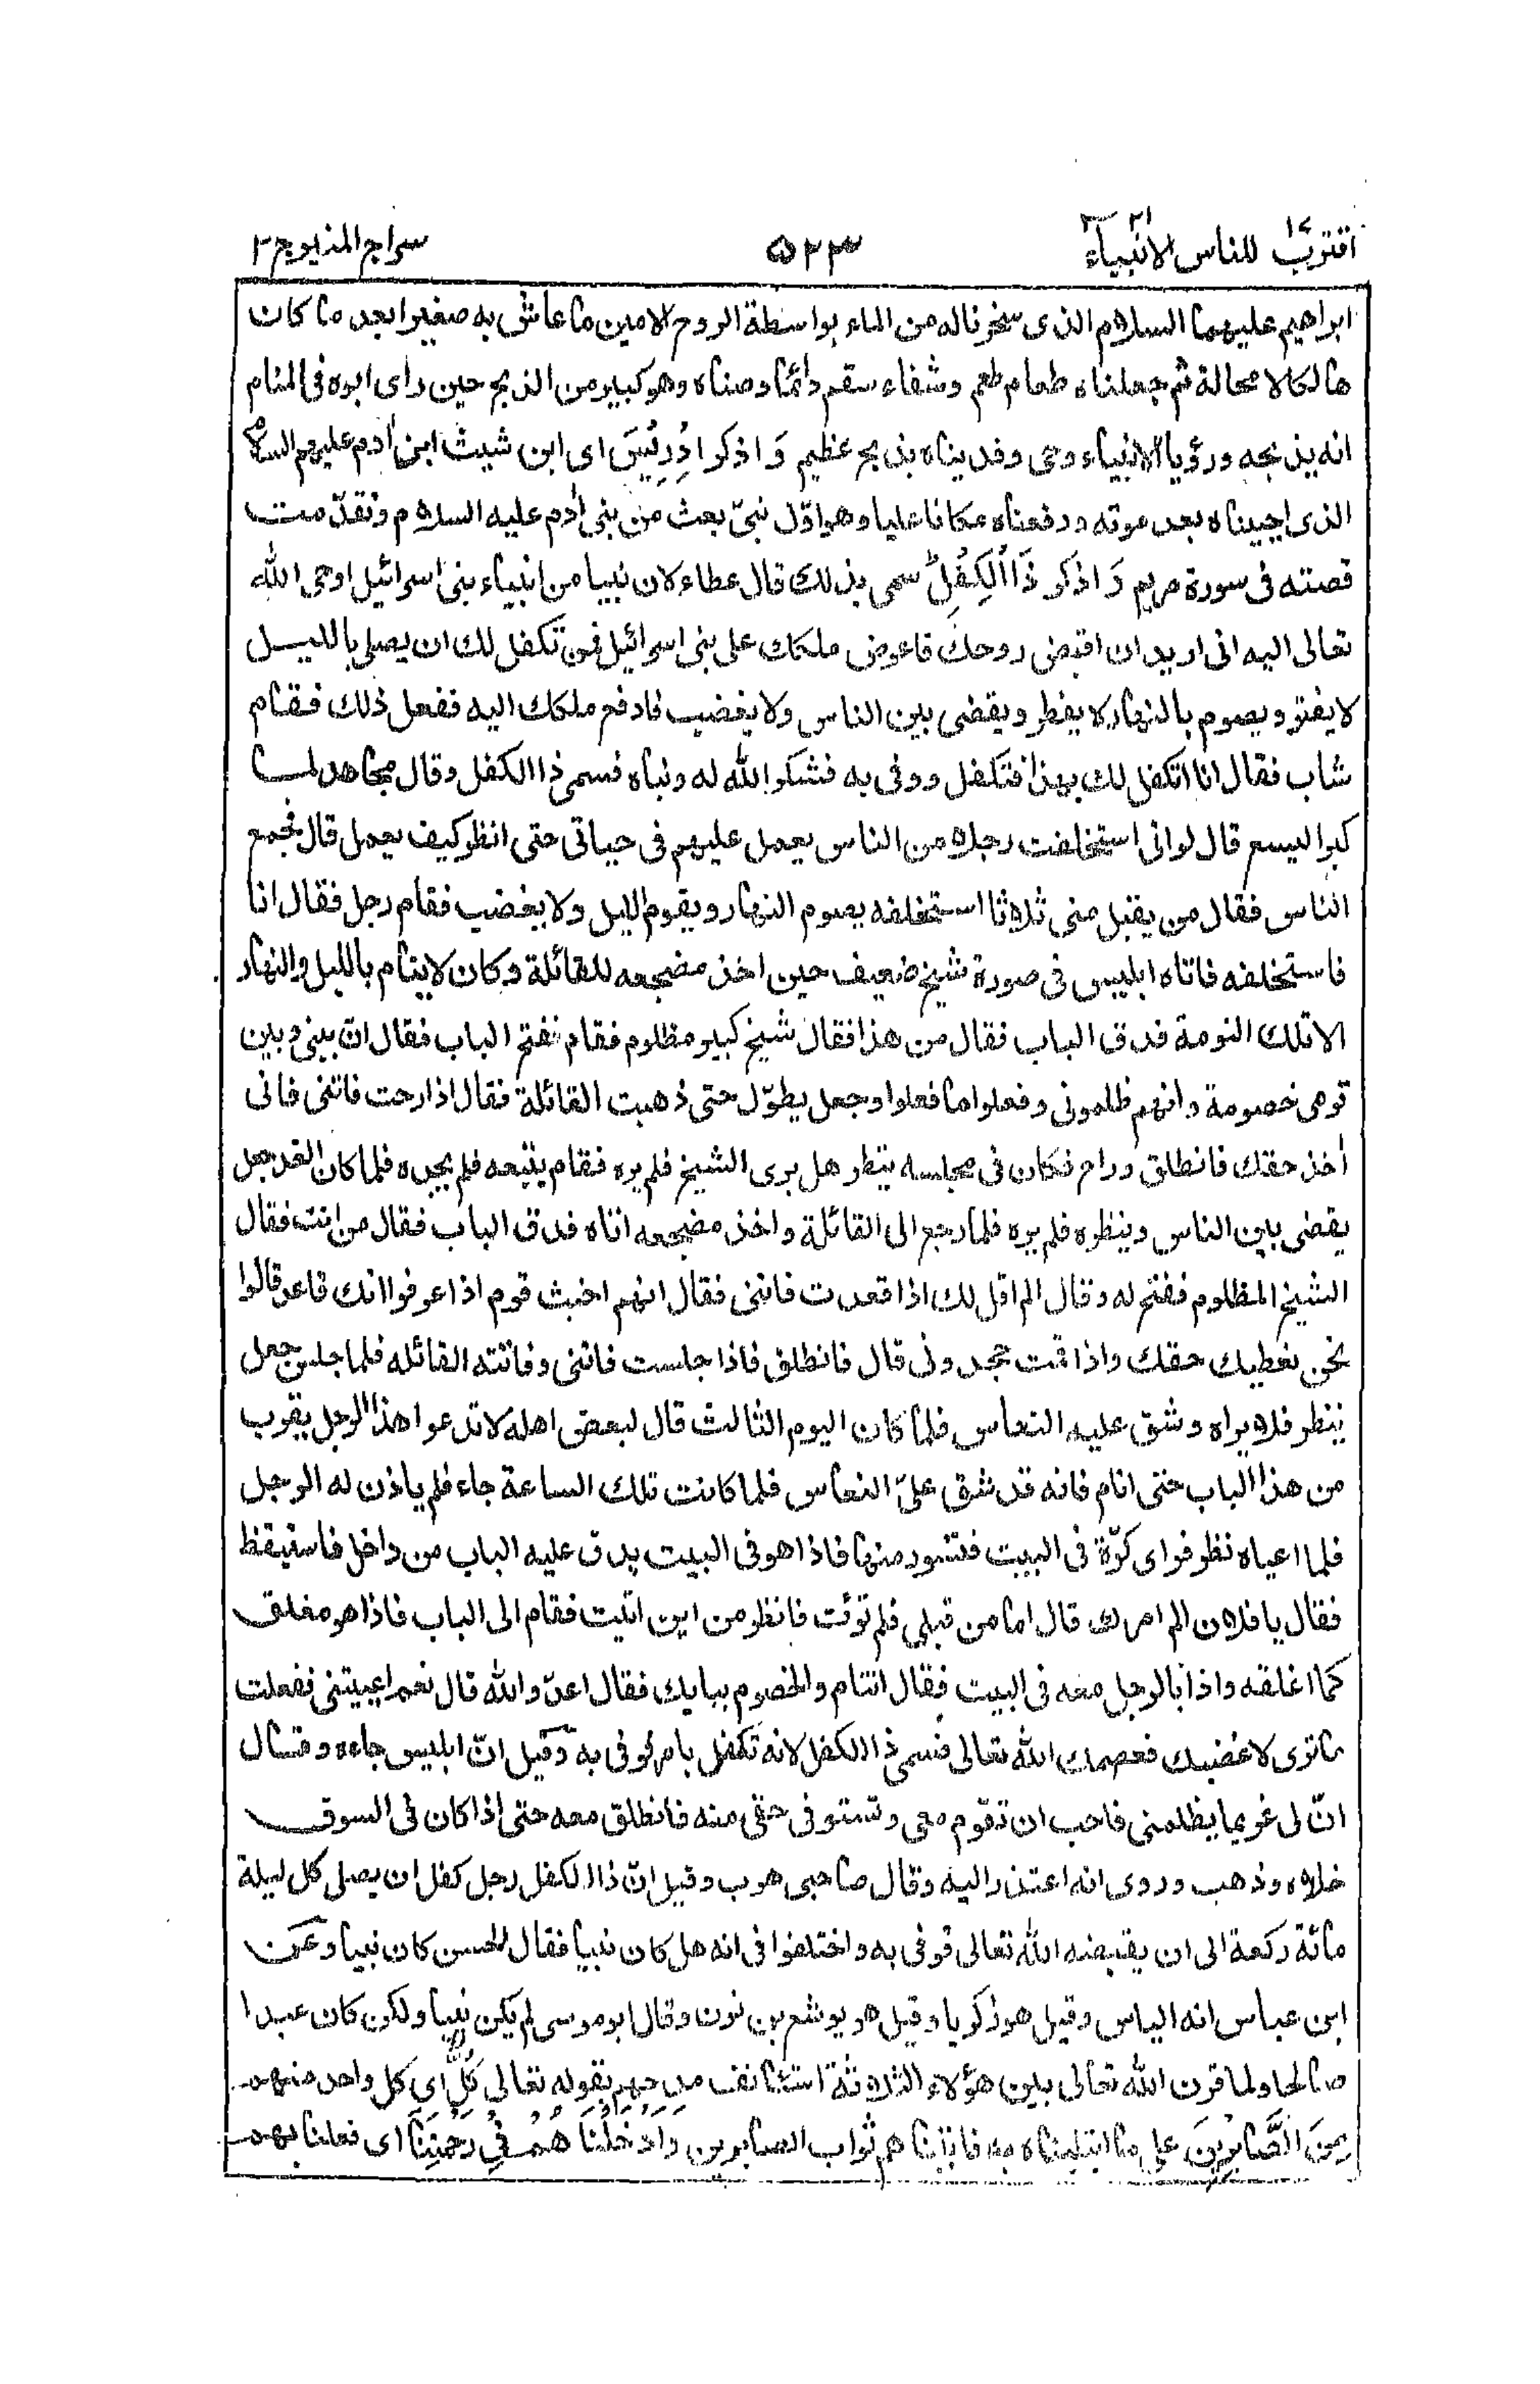 اقترب للناس ١٧ الانبياء ٢١
٥٢٣
سراج المنير ج ٢
ابراهيم عليهما السلام الذى سخرناله من الماء بواسطة الروح الامين ما عاش به صغيرا بعد ما كان
هالكا لا محالة ثم جعلناه طعام طعم وشفاء سقم دائما وصناه وهو كبير من الذبح حين راى ابوه فى المنام
انه يذبحه ورؤيا الانبياء وحى وفديناه بذبح عظيم وَ اذكر اِدْرِيْسَ اى ابن شيث ابن أدم عليهم السلام
الذى احييناه بعد موته ورفعناه مكانا عليا وهو اوّل نبىّ بعث من بنى أدم عليه السلام وتقدّمت
قصته فى سورة مريم وَ اذكر ذَا الْكِفْلِ سمى بذلك قال عطاء لان نبيا من انبياء بنى اسرائيل اوحى الله
تعالى اليه انى اريد ان اقبض روحك فاعرض ملكك على بنى اسرائيل فمن تكفل لك ان يصلى بالليل
لا يفتر ويصوم بالنهار لا يفطر ويقضى بين الناس ولا يغضب فادفع ملكك اليه ففعل ذلك فقام
شاب فقال انا اتكفل لك بهذا فتكفل ووفى به فشكر الله له ونباه فسمى ذا الكفل وقال مجاهد لما
كبر اليسع قال لوانى استخلفت رجلا من الناس يعمل عليهم فى حياتى حتى انظر كيف يعمل قال فجمع
الناس فقال من يقبل منى ثلاثا استخلفه يصوم النهار ويقوم الليل ولا يغضب فقام رجل فقال انا
فاستخلفه فاتاه ابليس فى صورة شيخ ضعيف حين اخذ مضجعه للقائلة وكان لا ينام بالليل والنهار
الا تلك النومة فدق الباب فقال من هذا فقال شيخ كبير مظلوم فقام ففتح الباب فقال انّ بينى وبين
قومى خصومة وانهم ظلمونى وفعلوا ما فعلوا وجعل يطوّل حتى ذهبت القائلة فقال اذا رحت فاتنى فانى
أخذ حقك فانطلق وراح فكان فى مجلسه ينظر هل يرى الشيخ فلم يره فقام يتبعه فلم يجده فلما كان الغد جعل
يقضى بين الناس وينظره فلم يره فلما رجع الى القائلة واخذ مضجعه اتاه فدق الباب فقال من انت فقال
الشيخ المظلوم ففتح له وقال الم اقل لك اذا قعدت فاتنى فقال انهم اخبث قوم اذا عرفوا انك قاعد قالوا
نحن نعطيك حقك واذا قمت جحدونى قال فانطلق فاذا جلست فاتنى وفاتته القائله فلما جلس جعل
ينظر فلا يراه وشق عليه النعاس فلما كان اليوم الثالث قال لبعض اهله لا تدعوا هذا الرجل يقرب
من هذا الباب حتى انام فانه قد شق علىّ النعاس فلما كانت تلك الساعة جاء فلم ياذن له الرجل
فلما اعياه نظر فراى كوّة فى البيت فتسور منها فاذا هو فى البيت يدق عليه الباب من داخل فاستيقظ
فقال يا فلان الم امرك قال اما من قبلى فلم تؤت فانظر من اين اتيت فقام الى الباب فاذا هو مغلق
كما اغلقه واذا بالرجل معه فى البيت فقال اتنام والخصوم ببابك فقال اعدوّ الله قال نعم اعييتنى ففعلت
ما ترى لاغضبك فعصمك الله تعالى فسمى ذا الكفل لانه تكفل بامر فوفى به وقيل انّ ابليس جاءه وقال
انّ لى غريما يظلمنى فاحب ان تقوم معى وتستوفى حقى منه فانطلق معه حتى اذا كان فى السوق
خلاه وذهب وروى انه اعتذر اليه وقال صاحبى هرب وقيل انّ ذا الكفل رجل كفل ان يصلى كل ليلة
مائة ركعة الى ان يقبضه الله تعالى فوفى به واختلفوا فى انه هل كان نبيا فقال الحسن كان نبيا وعن
ابن عباس انه الياس وقيل هو زكريا وقيل هو يوشع بن نون وقال ابو موسى لم يكن نبيا ولكن كان عبدا
صالحا ولما قرن الله تعالى بين هؤلاء الثلاثة استانف مدحهم بقوله تعالى كُلٌّ اى كل واحد منهم
مِنَ الصّٰبِرِيْنَ على ما ابتليناه به فاتيناهم ثواب الصابرين وَاَدْخَلْنَا هُمْ فِىْ رَحْمَتِنَا اى فعلنا بهم